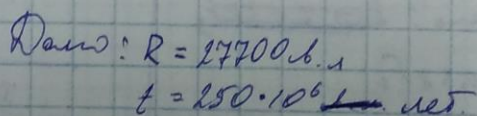 Дано: R = 27700 св. л
t = 250·10⁶ лет.